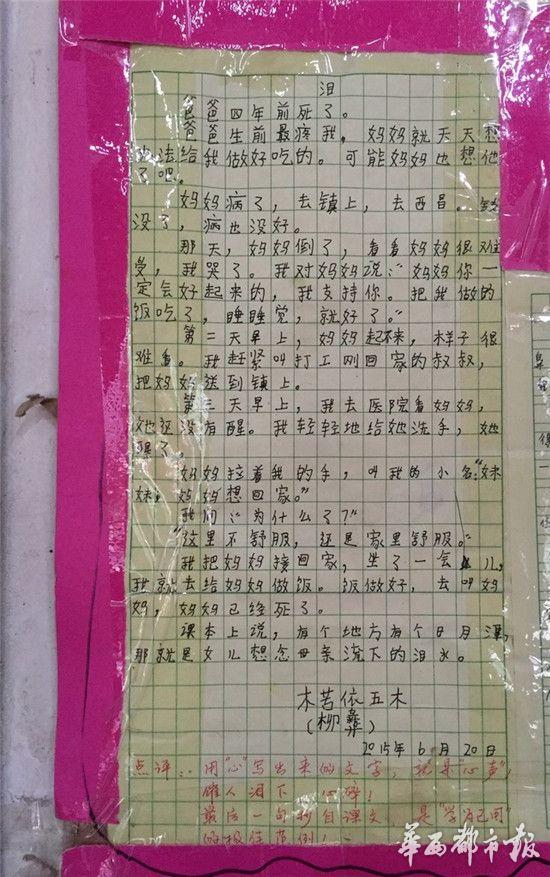 泪
爸爸四年前死了。
爸爸生前最疼我，妈妈就天天想
办法给我做好吃的。可能妈妈也想他
了吧。
妈妈病了，去镇上，去西昌。钱
没了，病也没好。
那天，妈妈倒了，看看妈妈很难
受，我哭了。我对妈妈说：“妈妈你一
定会好起来的，我支持你。把我做的
饭吃了，睡睡觉，就好了。”
第二天早上，妈妈起不来，样子很
难看。我赶紧叫打工刚回家的叔叔，
把妈妈送到镇上。
第三天早上，我去医院看妈妈，
她还没有醒。我轻轻地给她洗手，她
醒了。
妈妈拉着我的手，叫我的小名：“妹
妹，妈妈想回家。”
我问：“为什么了？”
“这里不舒服，还是家里舒服。”
我把妈妈接回家，坐了一会儿，
我就去给妈妈做饭。饭做好，去叫妈
妈，妈妈已经死了。
课本上说，有个地方有个日月潭，
那就是女儿想念母亲流下的泪水。
木苦依五木
（柳彝）
2015年6月20日
点评：用“心”写出来的文字，就是“心声”，
催人泪下，心碎！
最后一句抄自课文，是“学为己用”
的极佳范例！
华西都市报